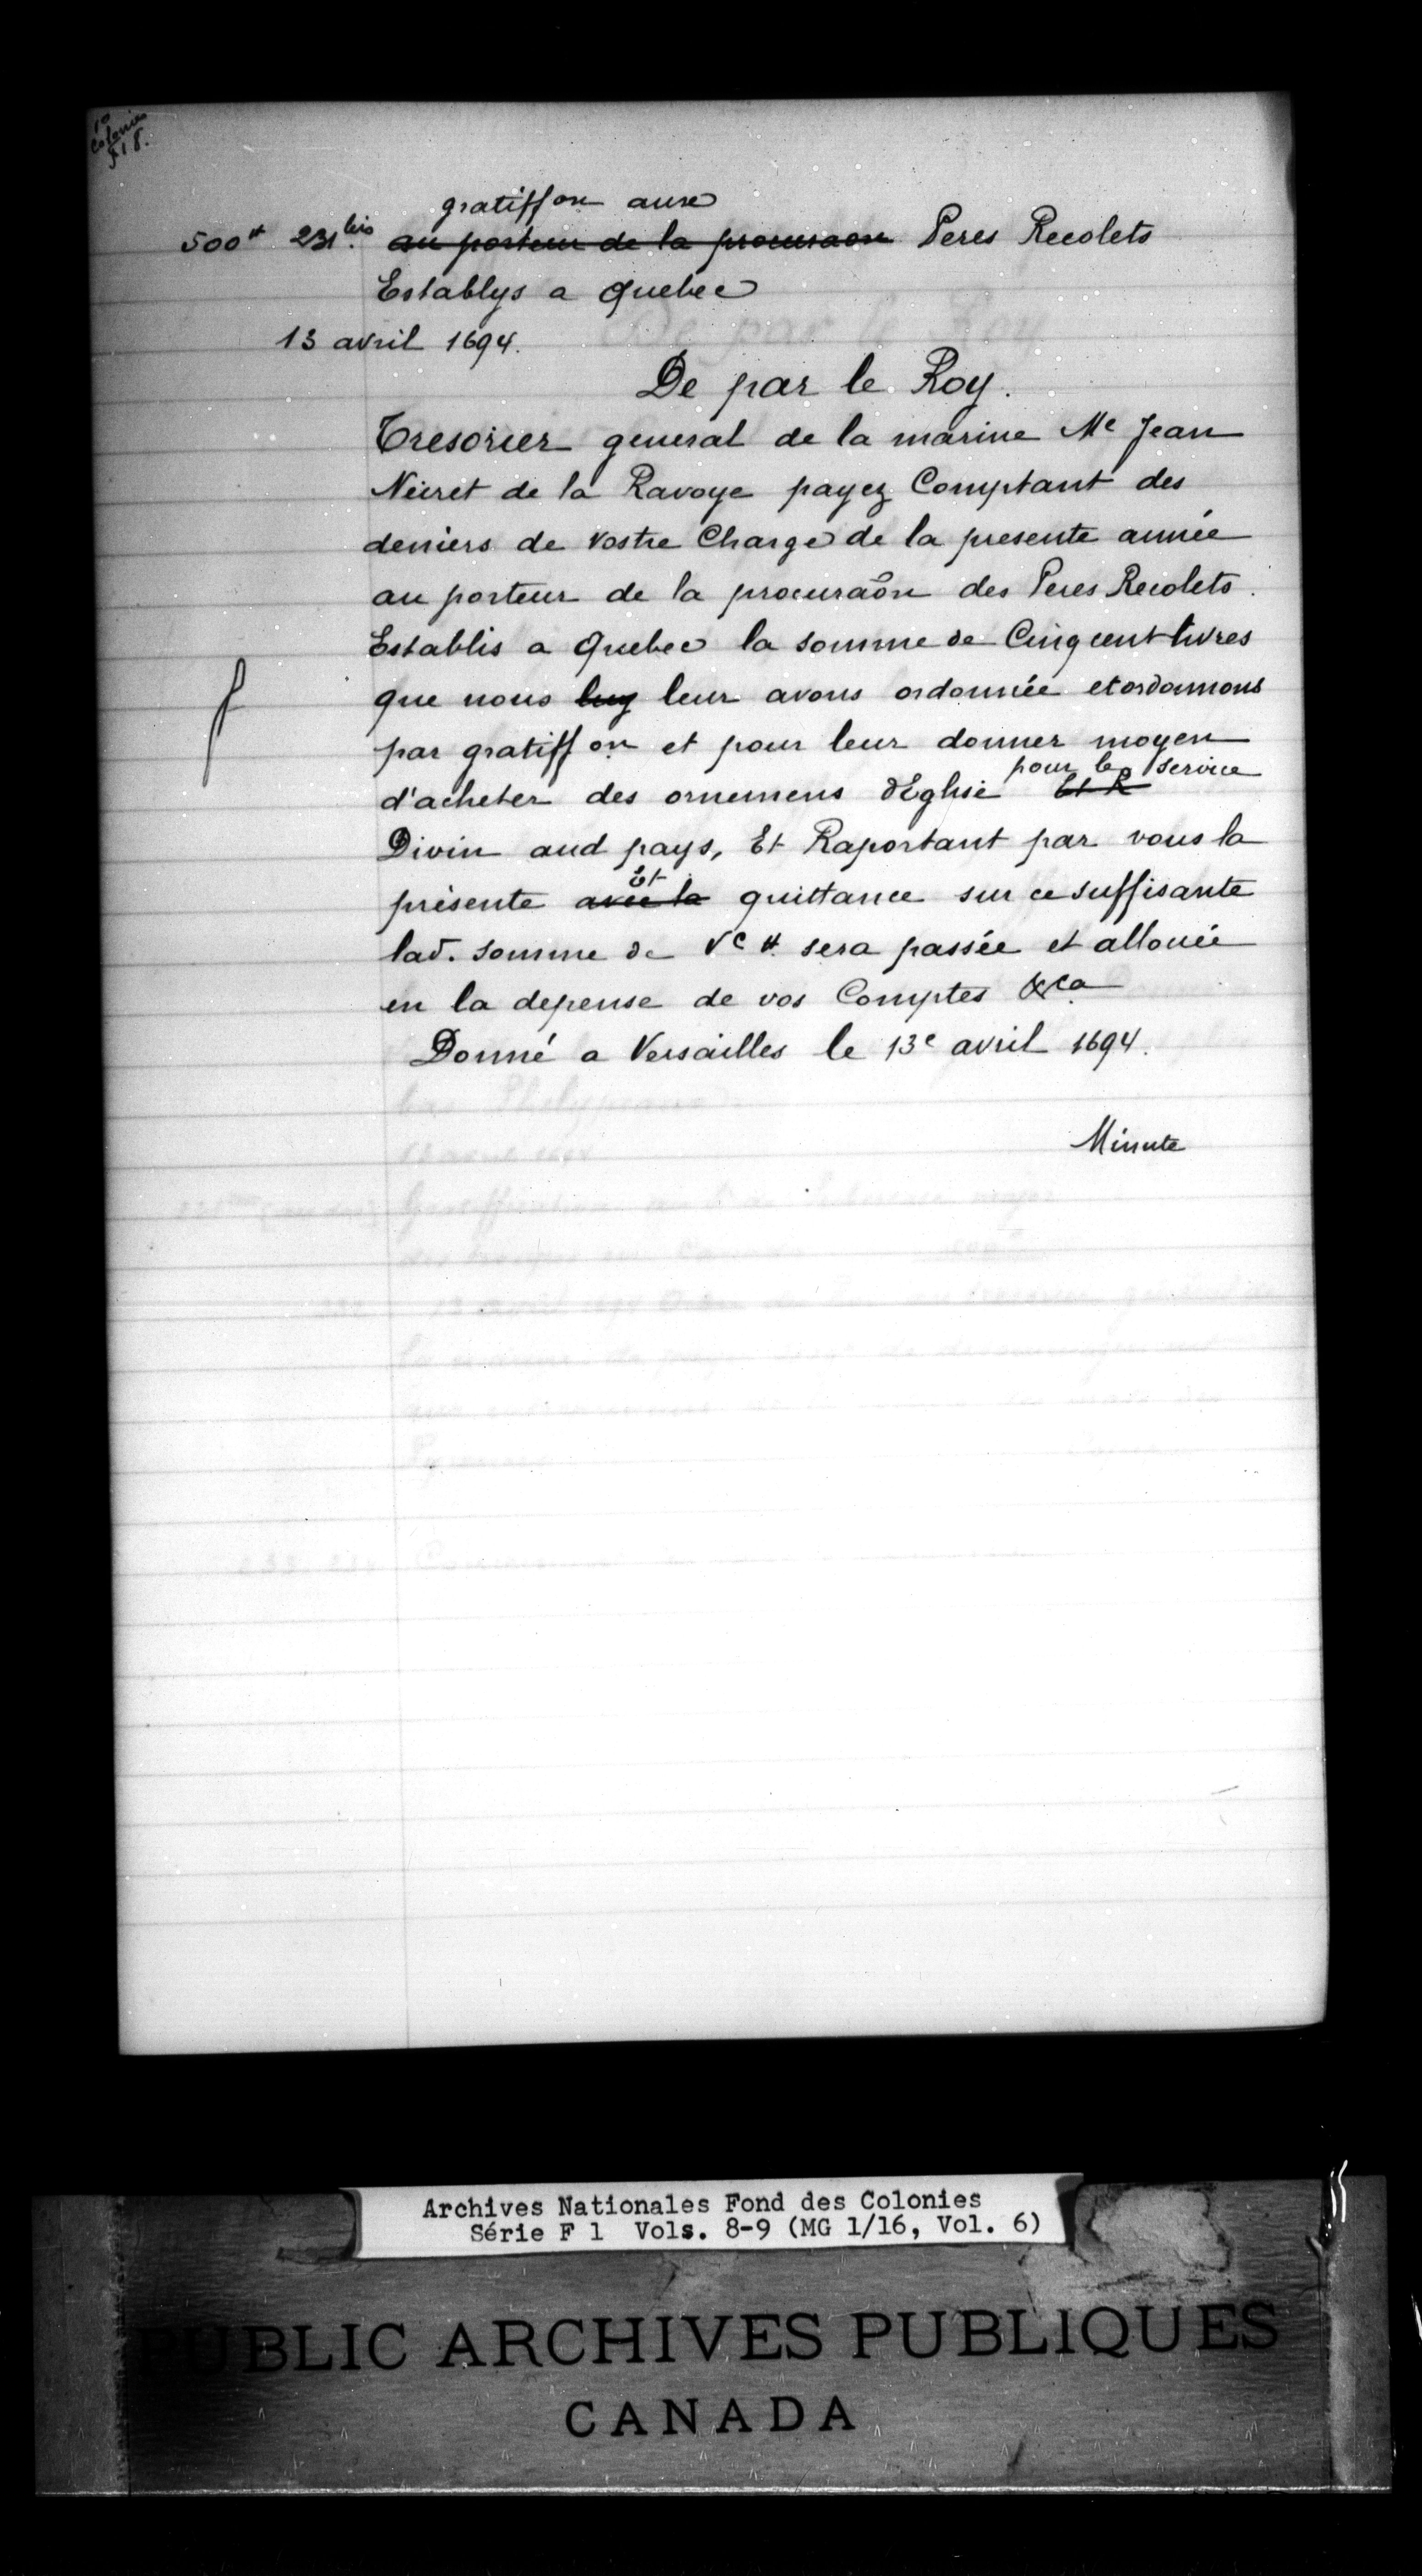 Colonies
F 1 8.
gratiff on aux
500# 231 bis. ~~au porteur de la procuraon~~ Peres Recolets
Establys a Quebec
13 avril 1694.
De par le Roy.
Tresorier general de la marine Me Jean
Neüret de la Ravoye payez Comptant des
deniers de vostre Charge de la presente année
au porteur de la procuraôn des Peres Recolets.
Establis a Quebec la somme de Cinq cent livres
que nous ~~luy~~ leur avons ordonnée et ordonnons
par gratiff on et pour leur donner moyen
pour le service
d'acheter des ornemens d'Eglise ~~Et R~~
Divin aud pays, Et Raportant par vous la
Et
présente ~~avec la~~ quittance sur ce suffisante
lad. somme de Vc # sera passée et allouée
en la depense de vos Comptes &ca
Donné a Versailles le 13e avril 1694.
Minute
Archives Nationales Fond des Colonies
Série F 1 Vols. 8-9 (MG 1/16, Vol. 6)
PUBLIC ARCHIVES PUBLIQUES
CANADA